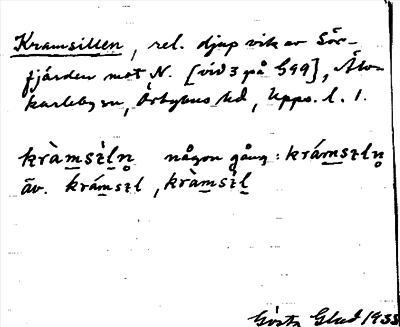 Kramsillen, rel. djup vik av Sör-
fjärden mot N. [vid 3 på G99], Älv-
karleby sn, Örbyhus hd, Upps. l. 1.
kràmsìln̥ någon gång: krámsɩln̥
äv. krámsɩl, kràmsìl
Gösta 1933